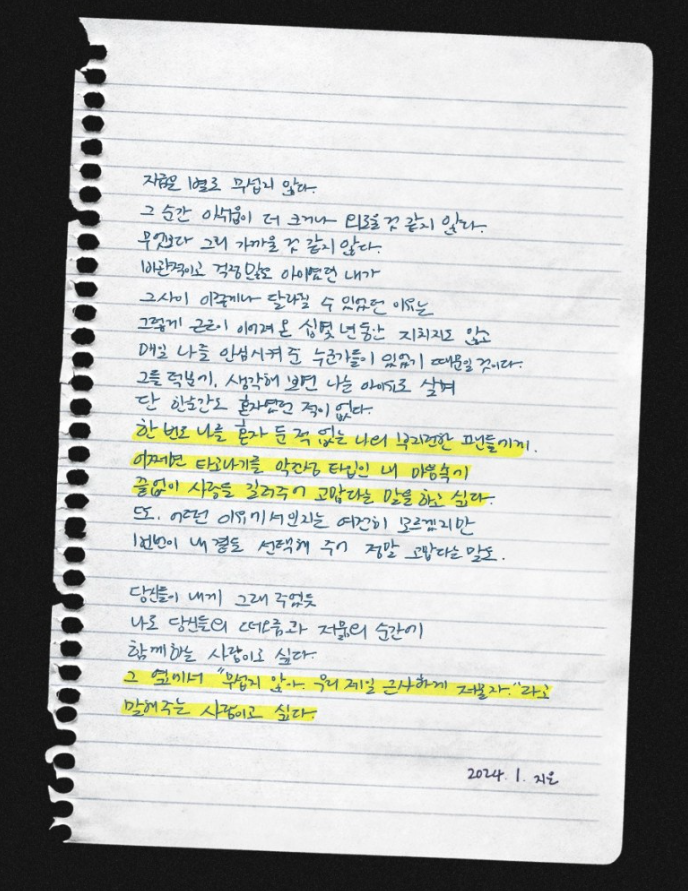 지금은 별로 무섭지 않다.
그 순간 아쉬움이 더 크거나 외로울 것 같지 않다.
무엇보다 그리 가까울 것 같지 않다.
비관적이고 걱정 많은 아이였던 내가
그사이 이렇게나 달라질 수 있었던 이유는
그렇게 근근이 이어져 온 십몇 년 동안 지치지도 않고
매일 나를 안심시켜 준 누군가들이 있었기 때문일 것이다.
그들 덕분에, 생각해 보면 나는 아이유로 살며
단 한순간도 혼자였던 적이 없다.
한 번도 나를 혼자 둔 적 없는 나의 부지런한 팬들에게.
어쩌면 타고나기를 악건성 타입인 내 마음속에
끝없이 사랑을 길러주어 고맙다는 말을 하고 싶다.
또. 어떤 이유에서인지는 여전히 모르겠지만
1번번이 내 곁을 선택해 주어 정말 고맙다는 말도.
당신들이 내게 그래 주었듯
나도 당신들의 떠오름과 저묾의 순간에
함께하는 사람이고 싶다.
그 옆에서 "무섭지 않아. 우리 제일 근사하게 저물자."라고
말해주는 사람이고 싶다.
2024. 1. 지은